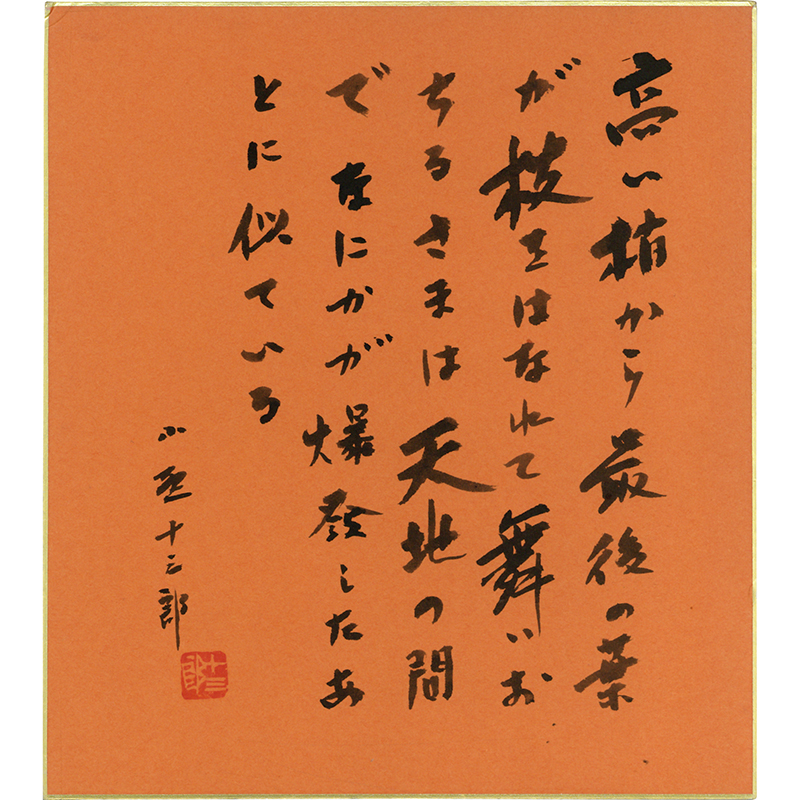 高い梢から最後の葉
が枝をはなれて舞いお
ちるさまは天地の間
で なにかが爆発したあ
とに似ている
小野十三郎
十三郎